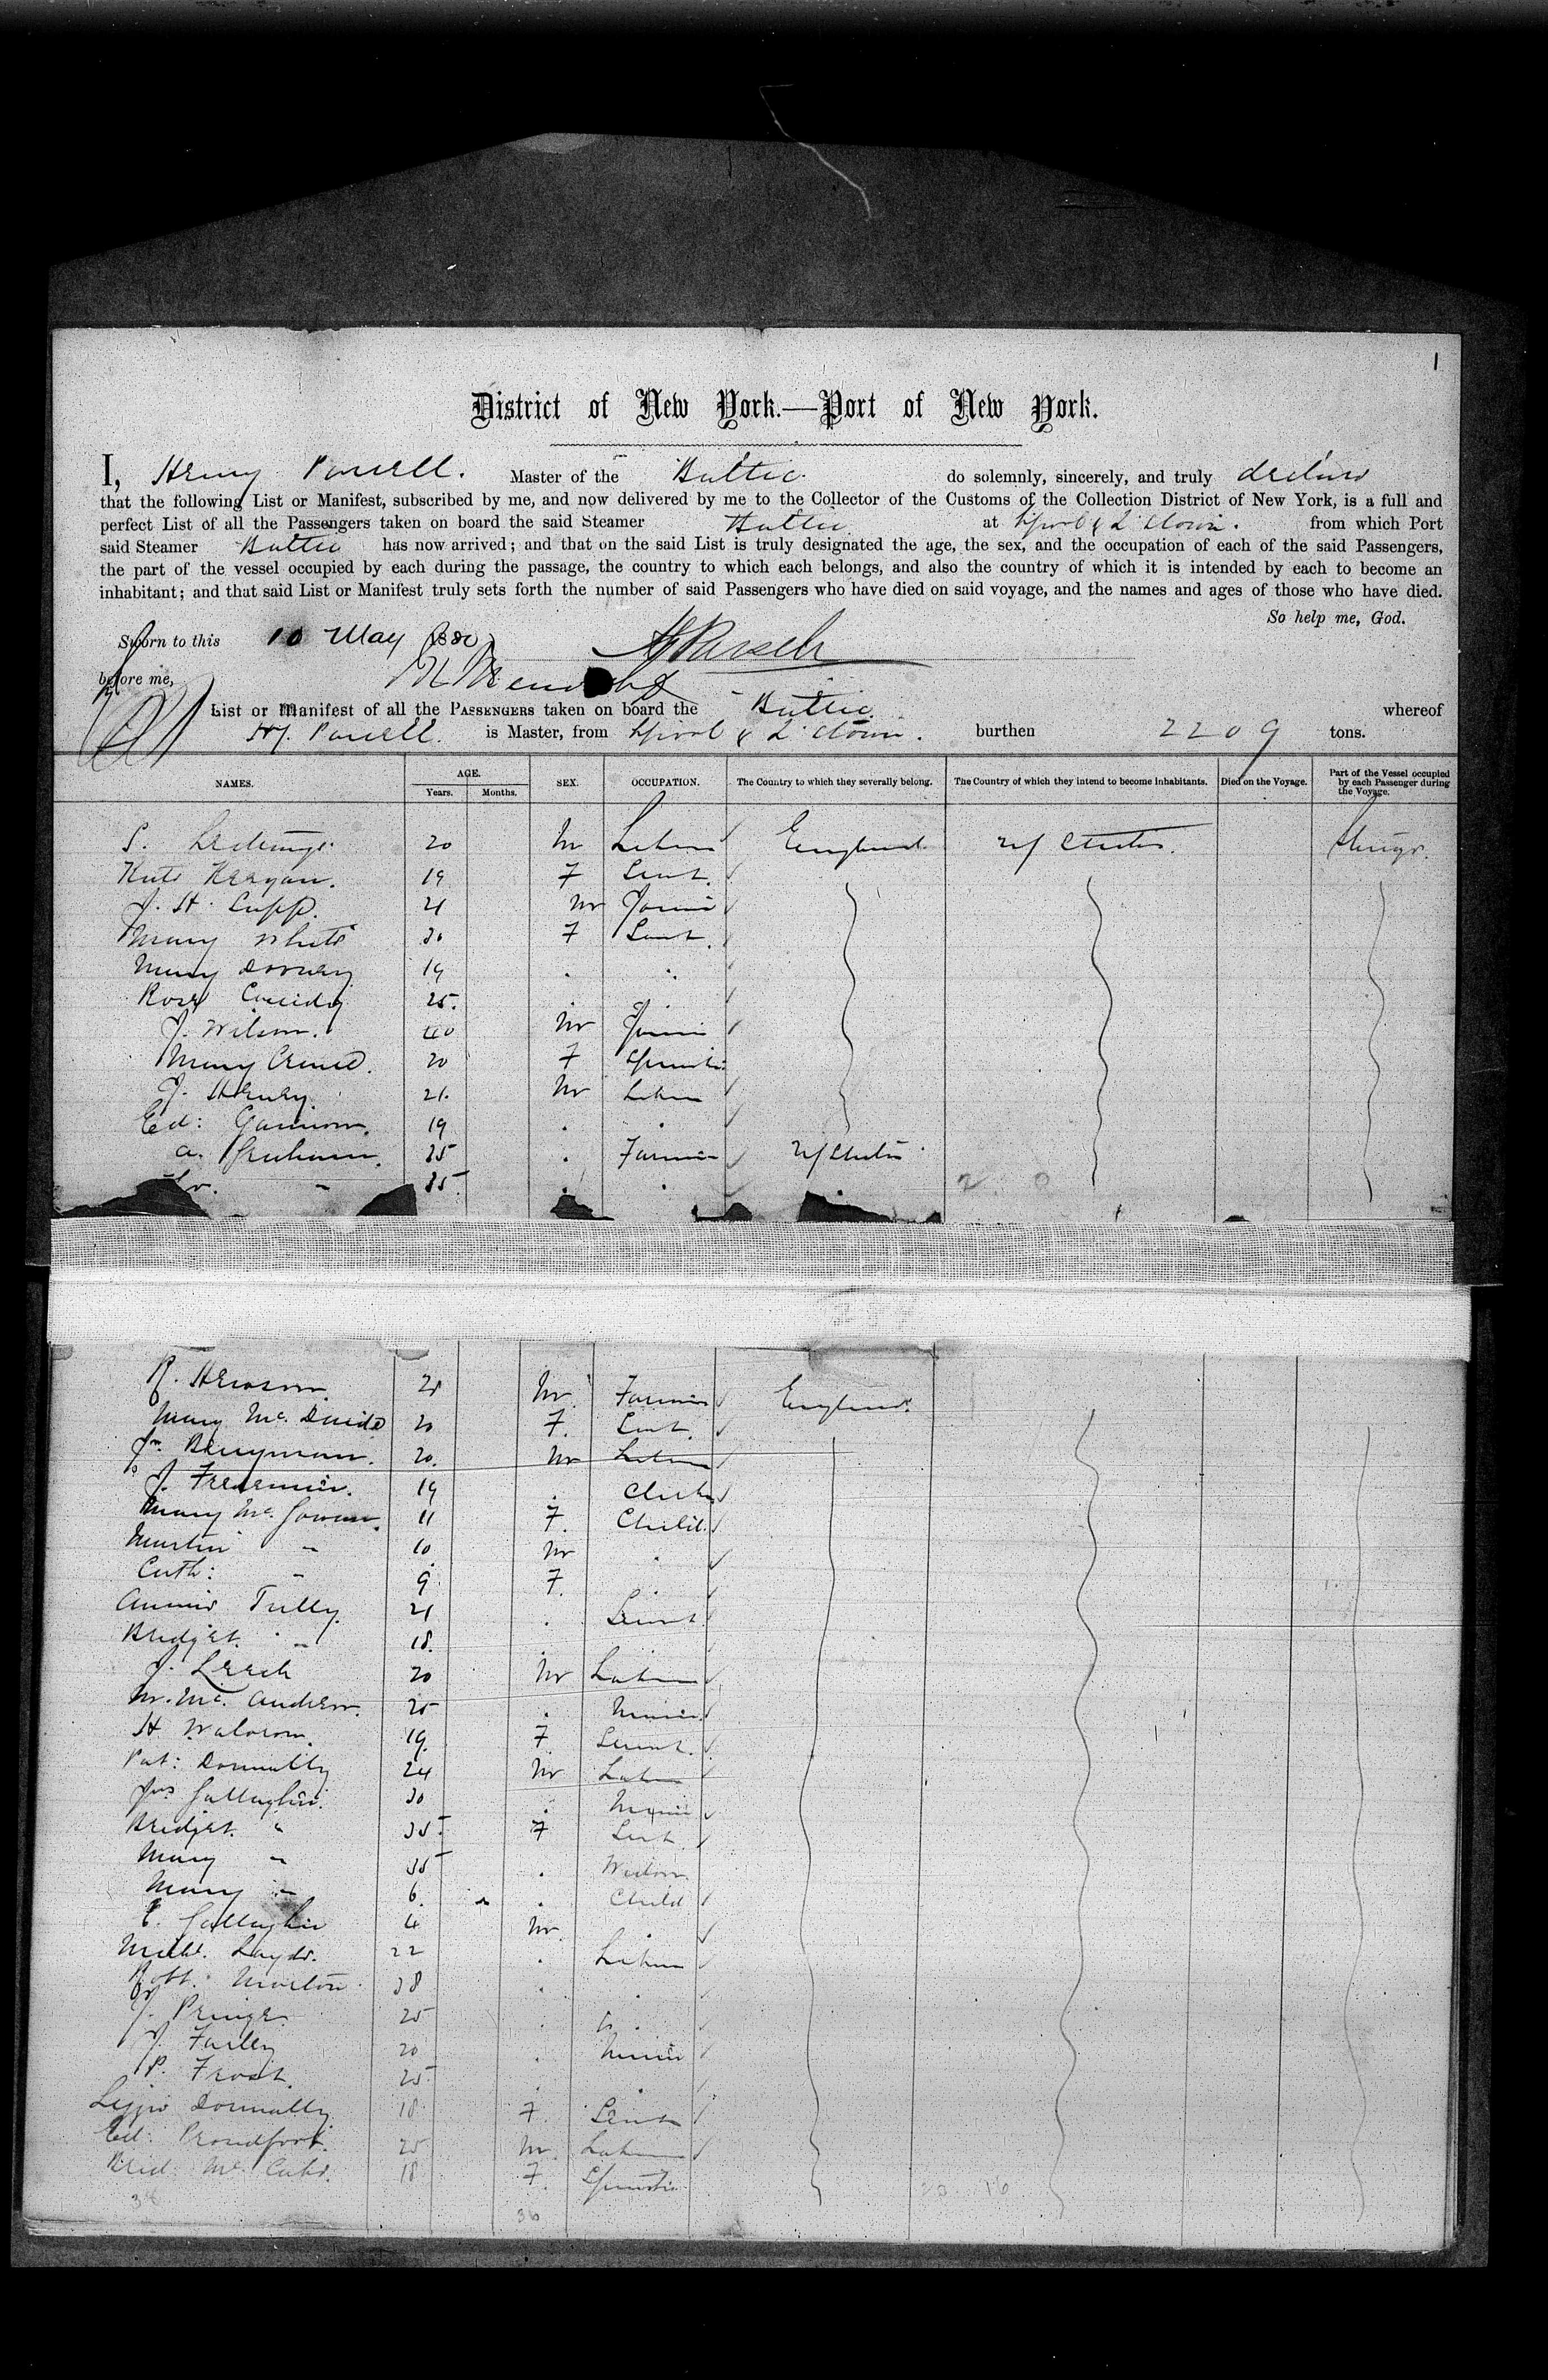 1
District of New York.—Port of New York.
I, Henry Parsell. Master of the Baltic do solemnly, sincerely, and truly declare
that the following List or Manifest, subscribed by me, and now delivered by me to the Collector of the Customs of the Collection District of New York, is a full and
perfect List of all the Passengers taken on board the said Steamer Baltic at L'pool & Q'town. from which Port
said Steamer Baltic has now arrived; and that on the said List is truly designated the age, the sex, and the occupation of each of the said Passengers,
the part of the vessel occupied by each during the passage, the country to which each belongs, and also the country of which it is intended by each to become an
inhabitant; and that said List or Manifest truly sets forth the number of said Passengers who have died on said voyage, and the names and ages of those who have died.
So help me, God.
Sworn to this 10 May 1880
H Parsell
before me,
List or Manifest of all the PASSENGERS taken on board the Baltic whereof
Hy. Parsell. is Master, from L'pool & Q'town. burthen 2209 tons.
NAMES. AGE. Years. Months. SEX. OCCUPATION. The Country to which they severally belong. The Country of which they intend to become inhabitants. Died on the Voyage. Part of the Vessel occupied by each Passenger during the Voyage.
S. 20 M Labr England U/States. Steerge.
Kate Keegan. 19 F Servt.
J. H. Cupp. 21 M
Mary White 30 F Servt.
Mary 19
Rose Cassidy 25.
J. Wilson. 40 M
Mary 20 F Spinster
J. Harvey 21. M Labr
Ed: 19
A. Graham. 35 Farmer U/States
35
R. Hewson 28 M. Farmer England.
Mary Mc. Davide 20 F. Servt.
Jn. Berryman. 20. M Labr
J. 19 Clerk
Mary Mc. Gowan. 11 F. Child.
Martin " 10 M
Cath: " 9 F.
Annie Tully. 21 Servt.
Bridget. " 18.
J. Leech 20 M Labr
M. Mc. Andrew. 25 Miner.
H. Waldrom. 19. F Servt.
Pat: Donnelly 24 M Labr
Jas Gallagher. 30 Miner
Bridget. " 35. F Servt.
Mary " 35 Widow
Mary " 6. Child
C. Gallagher 4 M.
Michl. Loyde. 22 Labr
Robt. Morton 38
J. 25
J. Farley 20 Miner
P. Frost. 25
Lizzie Donnelly. 18 F. Servt
Ed: Proudfoot. 25 M. Labr
Brid: Mc. Cabe. 18 F. Spinster
36